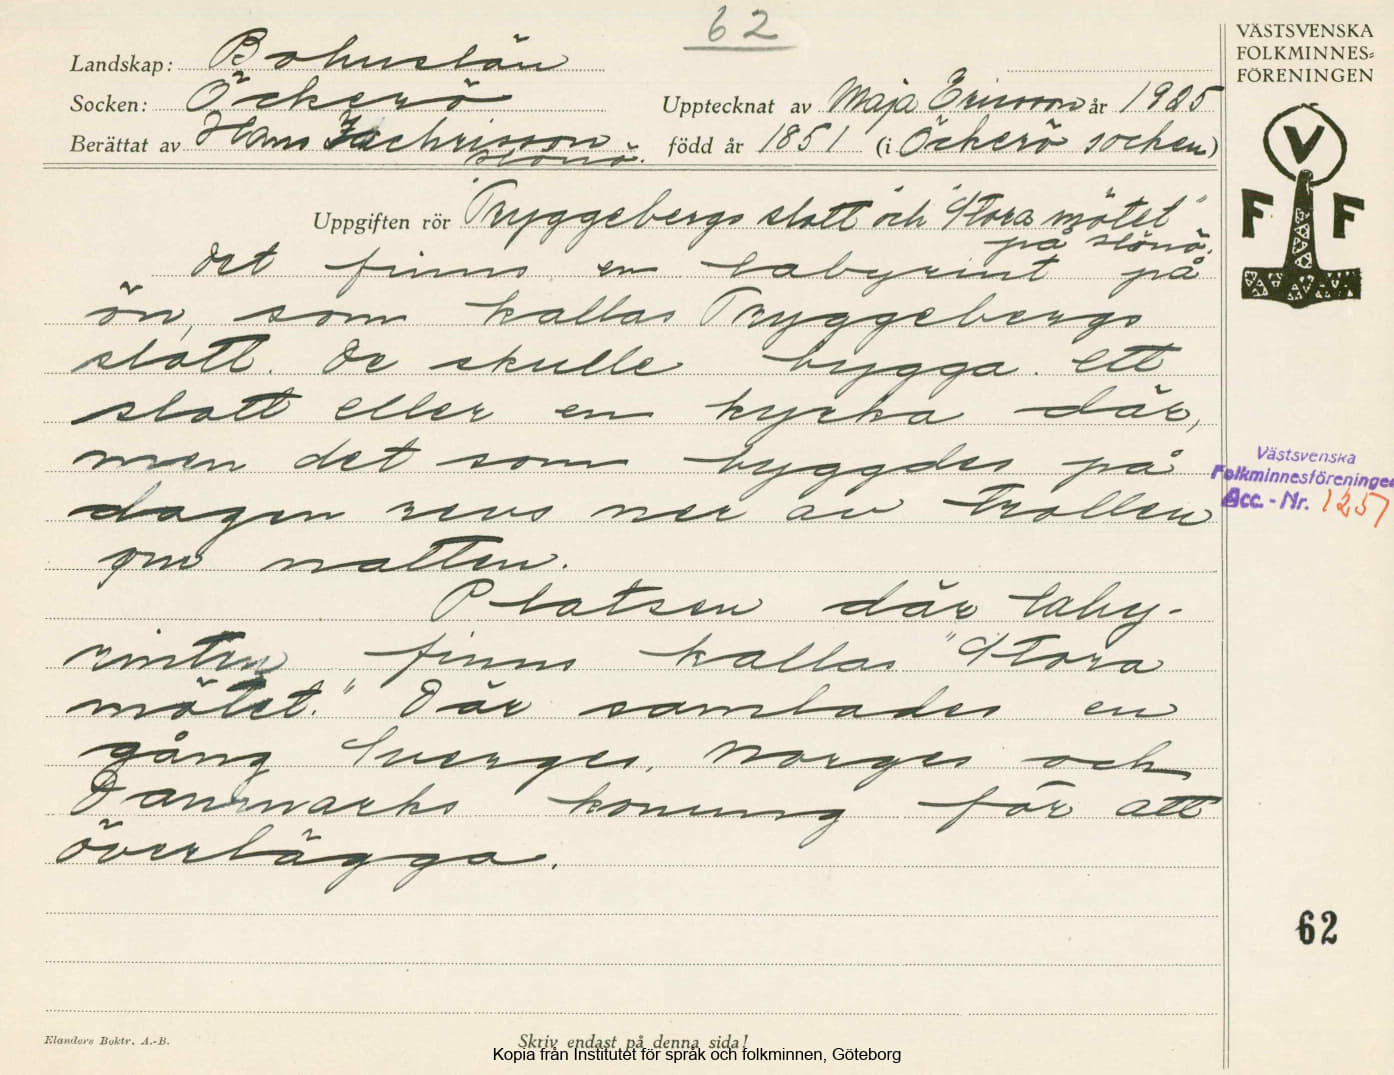 62
VÄSTSVENSKA
FOLKMINNES=
FÖRENINGEN
Landskap: Bohuslän
Socken: Öckerö
Upptecknat av Maja Ericsson år 1925
Berättat av Hans Zachrisson
slönö.
född år 1851 (i Öckerö socken)
V
F F
Uppgiften rör "Tryggebergs slott" och "Stora mötet"
på slönö.
Det finns en labyrint på
ön, som kallas Tryggebergs
slott. De skulle bygga ett
slott eller en kyrka där,
men det som byggdes på
dagen revs ner av trollen
om natten.
Platsen där laby-
rinten finns kallas "Stora
mötet." Där samlades en
gång Sverges, Norges och
Danmarks konung för att
överlägga.
Västsvenska
Folkminnesföreningen
Acc. - Nr. 1257
62
Elanders Boktr. A.-B.
Skriv endast på denna sida!
Kopia från Institutet för språk och folkminnen, Göteborg